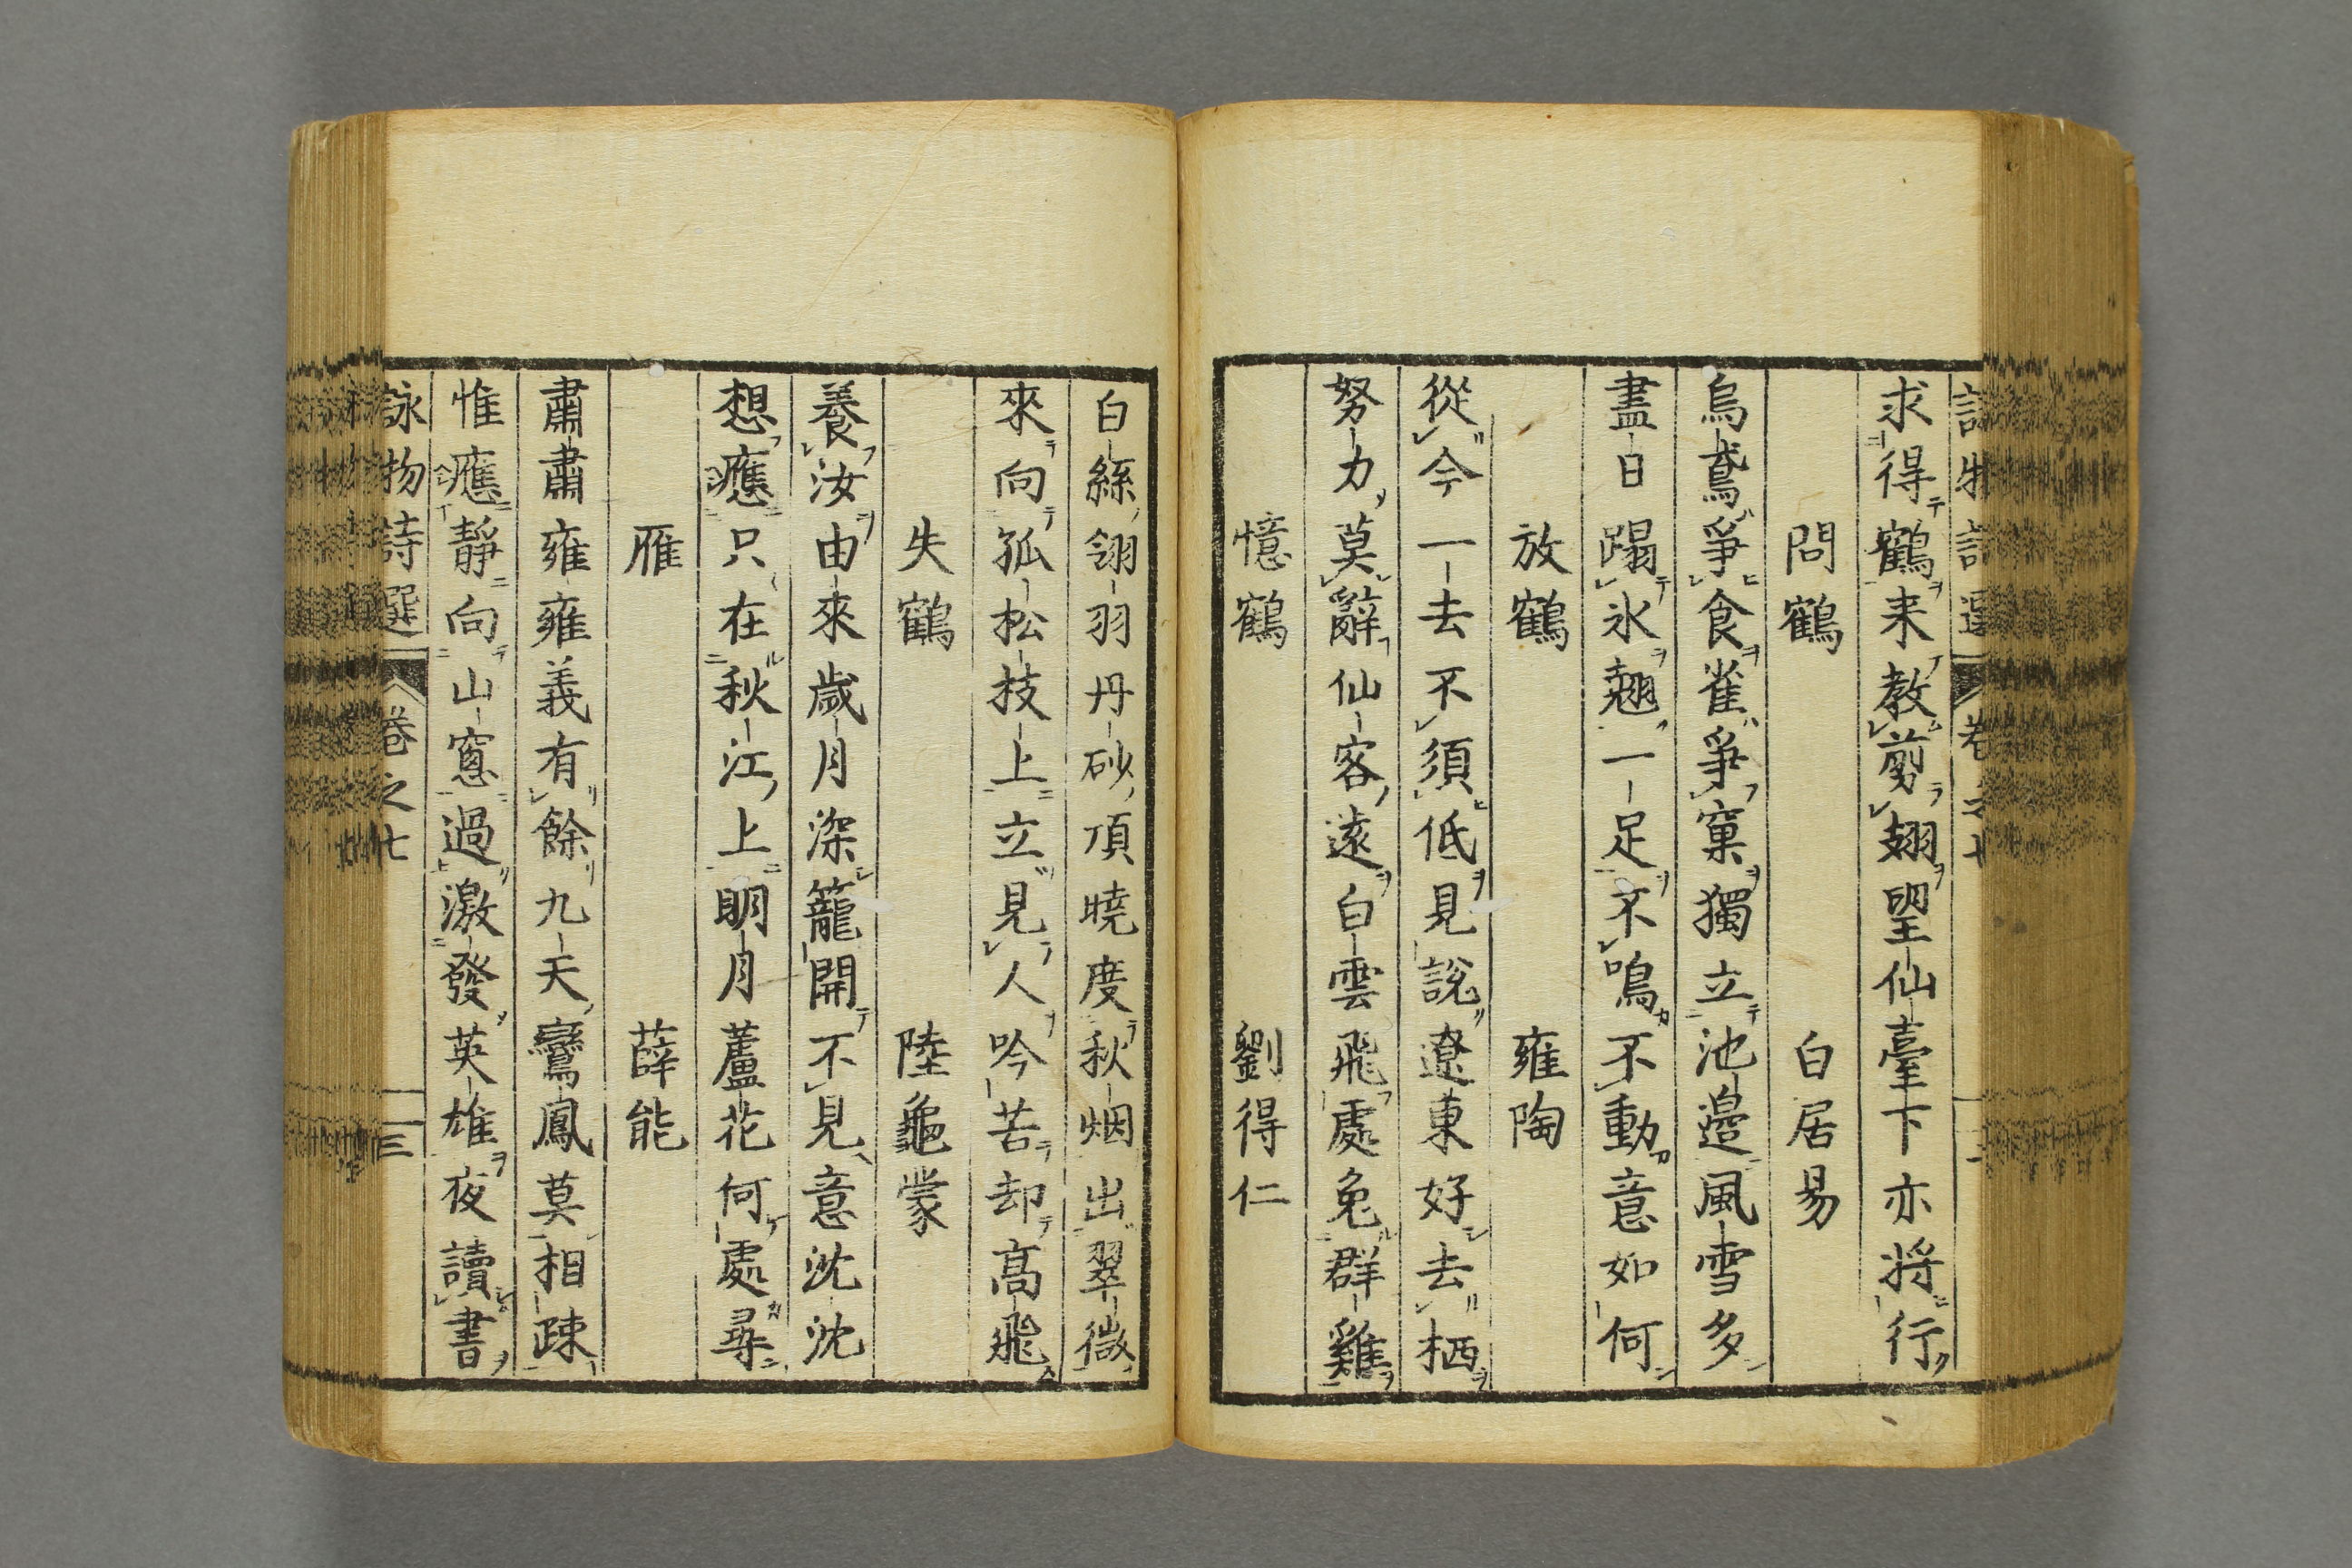 求得鶴来教剪翅望仙臺下亦将行
問鶴 白居易
烏鳶爭食雀爭窠獨立池邉風雪多
盡日蹋氷翹一足不鳴不動意如何
放鶴 雍陶
從今一去不須低見說遼東好去栖
努力莫辭仙客遠白雲飛處免群雞
憶鶴 劉得仁
白絲翎羽丹砂頂曉度秋烟出翠微
來向孤松枝上立見人吟苦却髙飛
失鶴 陸龜蒙
養汝由來歲月深籠開不見意沈沈
想應只在秋江上明月蘆花何處尋
雁 薛能
肅肅雍雍義有餘九天鸞鳳莫相疎
惟應靜向山窻過激發英雄夜讀書
詠物詩選 卷之七 三